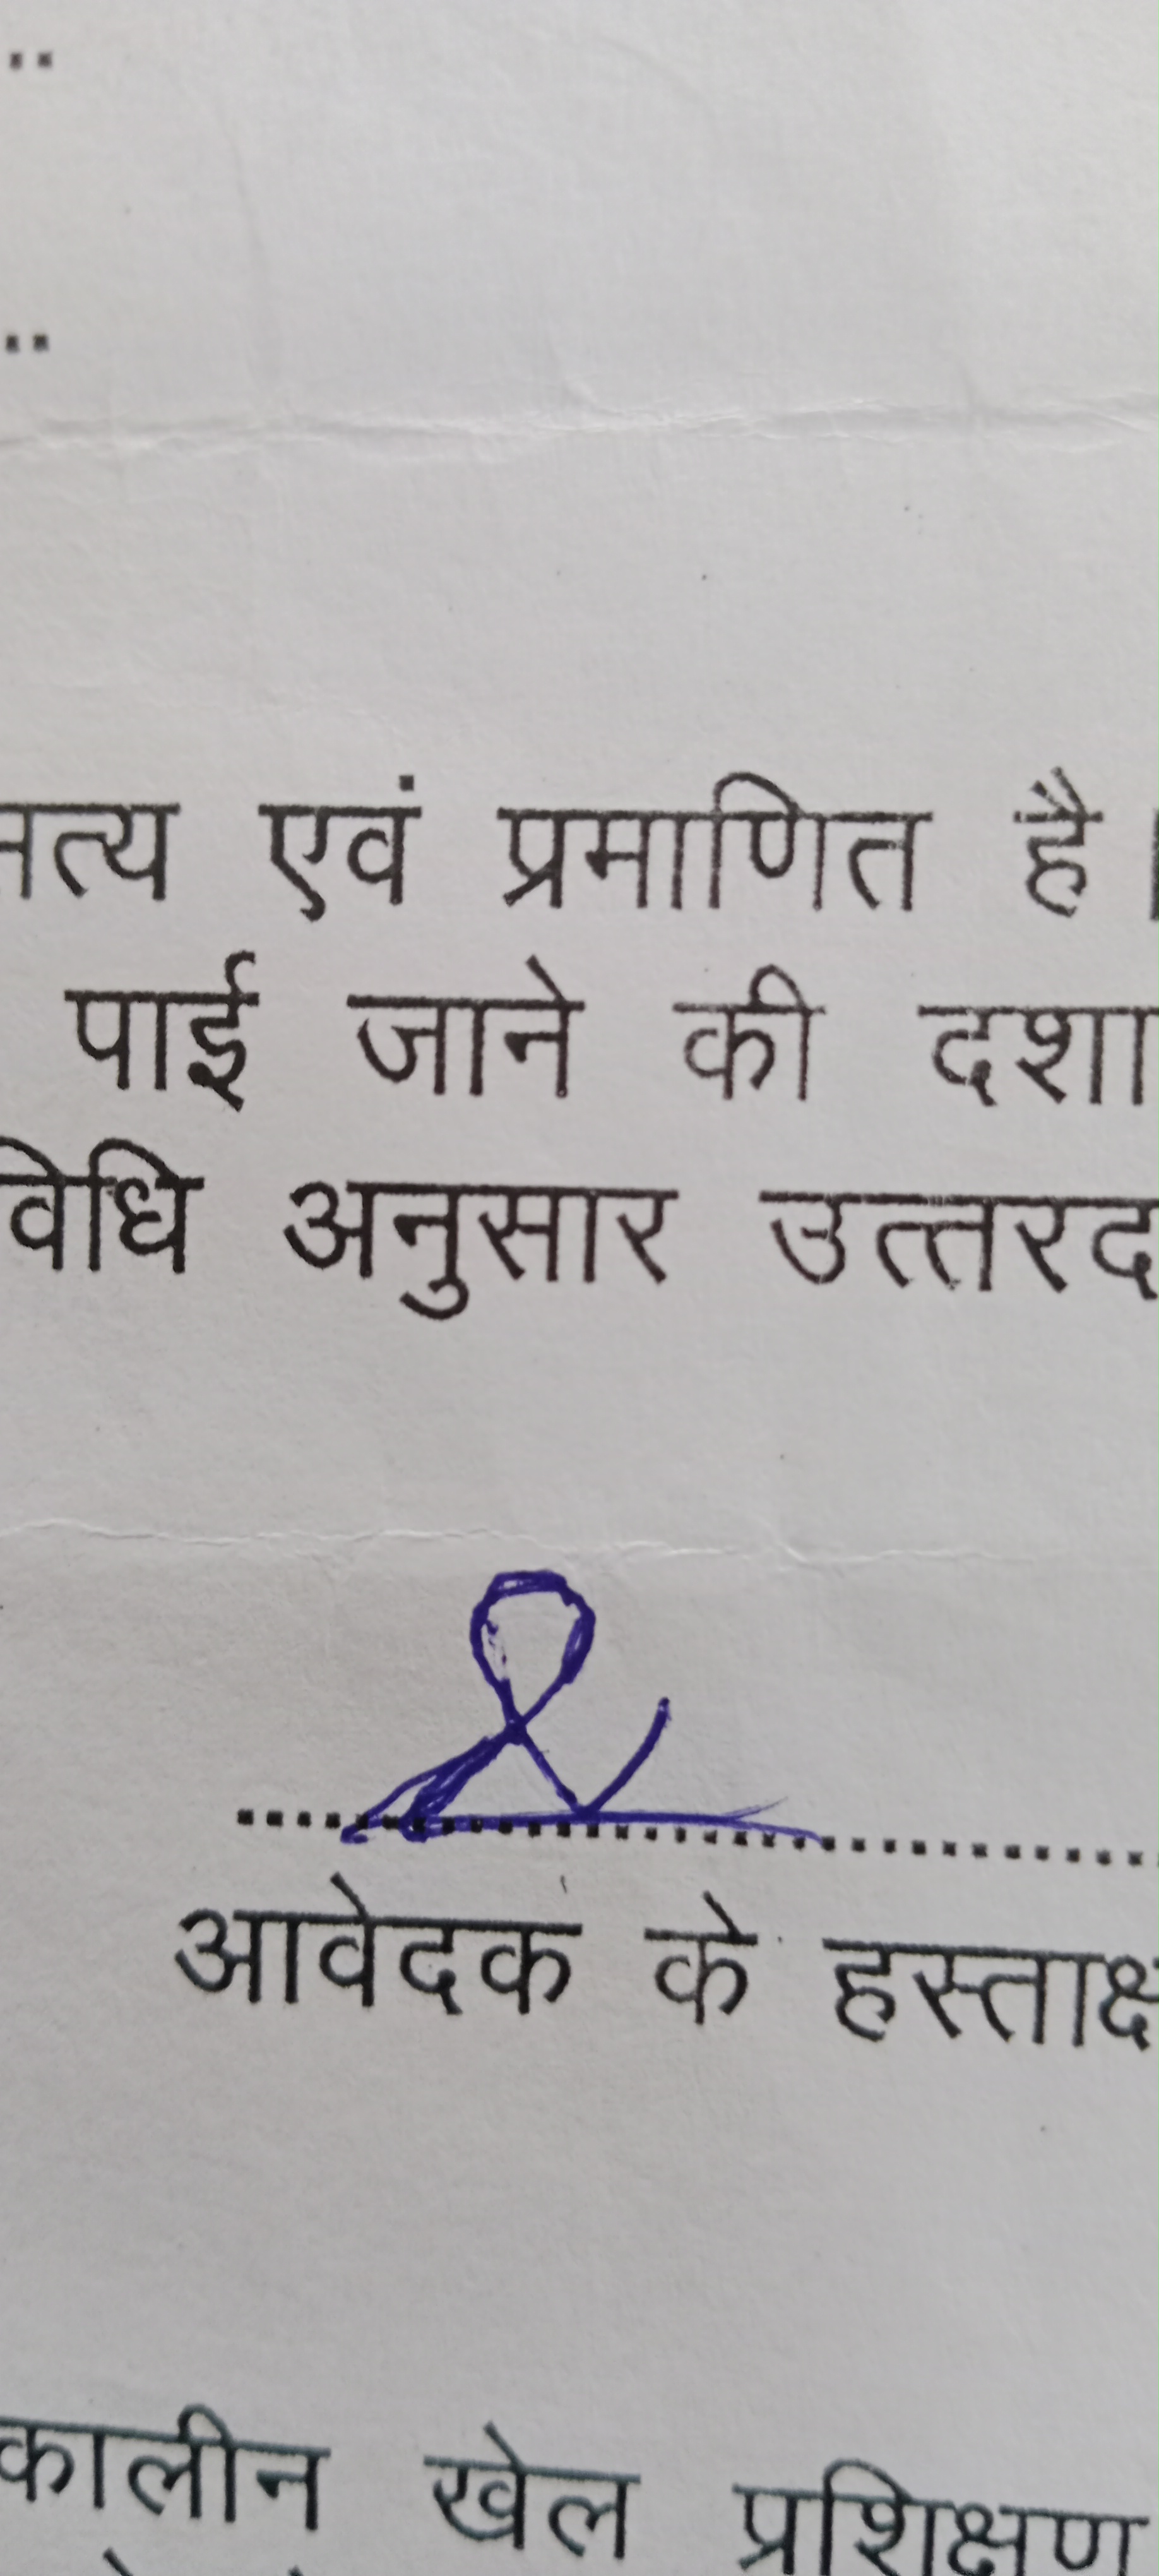 ..
..
सत्य एवं प्रमाणित है।
पाई जाने की दशा
विधि अनुसार उत्तरद
आवेदक के हस्ताक्ष
कालीन खेल प्रशिक्षण